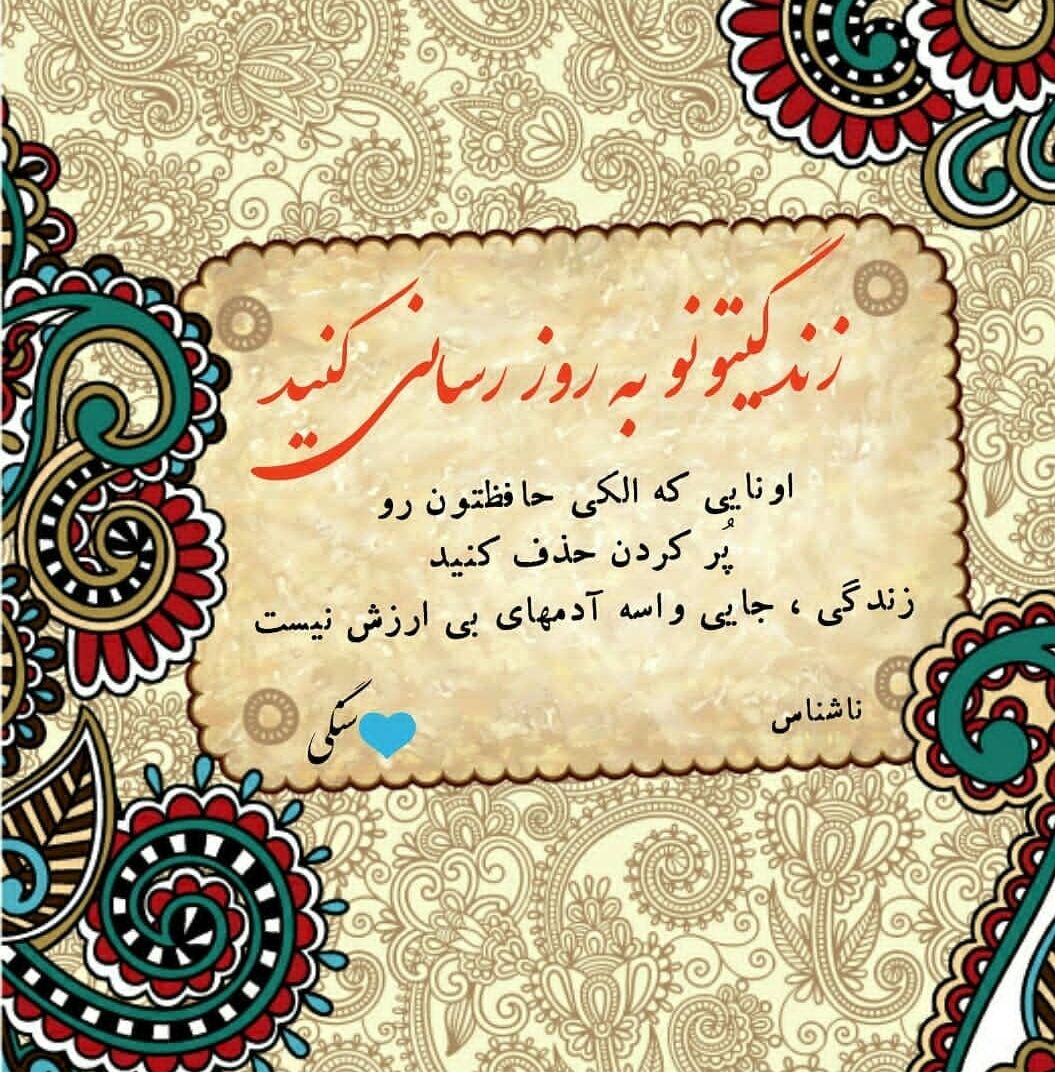 زندگیتونو به روز رسانی کنید
اونایی که الکی حافظتون رو
پُر کردن حذف کنید
زندگی ، جایی واسه آدمهای بی ارزش نیست
ناشناس
سنگی